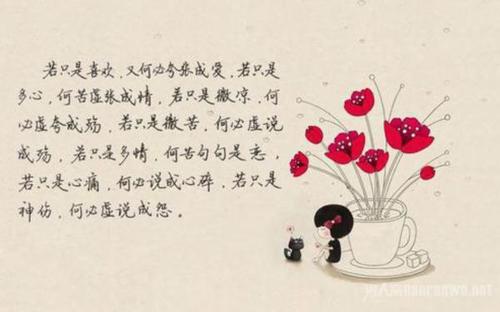 若只是喜欢，又何必夸张成爱，若只是
多心，何苦虚张成情，若只是微凉，何
必虚夸成殇，若只是微苦，何必虚说
成殇，若只是多情，何苦句句是恋，
若只是心痛，何必说成心碎，若只是
神伤，何必虚说成怨。